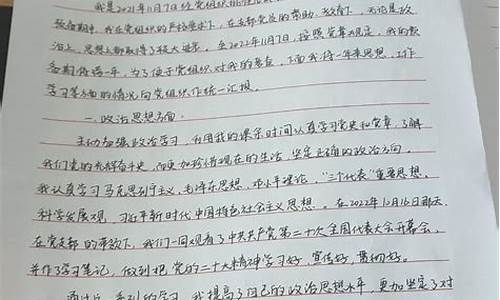 我是2021年11月7日经党组织批准
预备期中，我在党组织的严格要求下，在支部党员的帮助、教育下，无论是政
治上、思想上都取得了较大进步。在2022年11月7日，按照党章规定，我的预
备期将满一年，为了便于党组织对我的考查，下面我将一年来思想、工作
学习等方面的情况向党组织作统一汇报。
一、政治思想方面：
主动加强政治学习，利用我的课余时间认真学习党史和党章，了解
我们党的光辉奋斗史，从而更加珍惜现在的生活，坚定正确的政治方向。
我认真学习马克思列宁主义、毛泽东思想、邓小平理论、“三个代表”重要思想、
科学发展观、习近平新时代中国特色社会主义思想。在2022年10月16日那天，
在党支部的带领下，我们一同观看了中共共产党第二十次全国代表大会开幕会，
并作了学习笔记，做到把党的二十大精神学习好、宣传好、贯彻好。
通过这一系列的学习，我提高了自己的政治思想水平，更加坚定了对